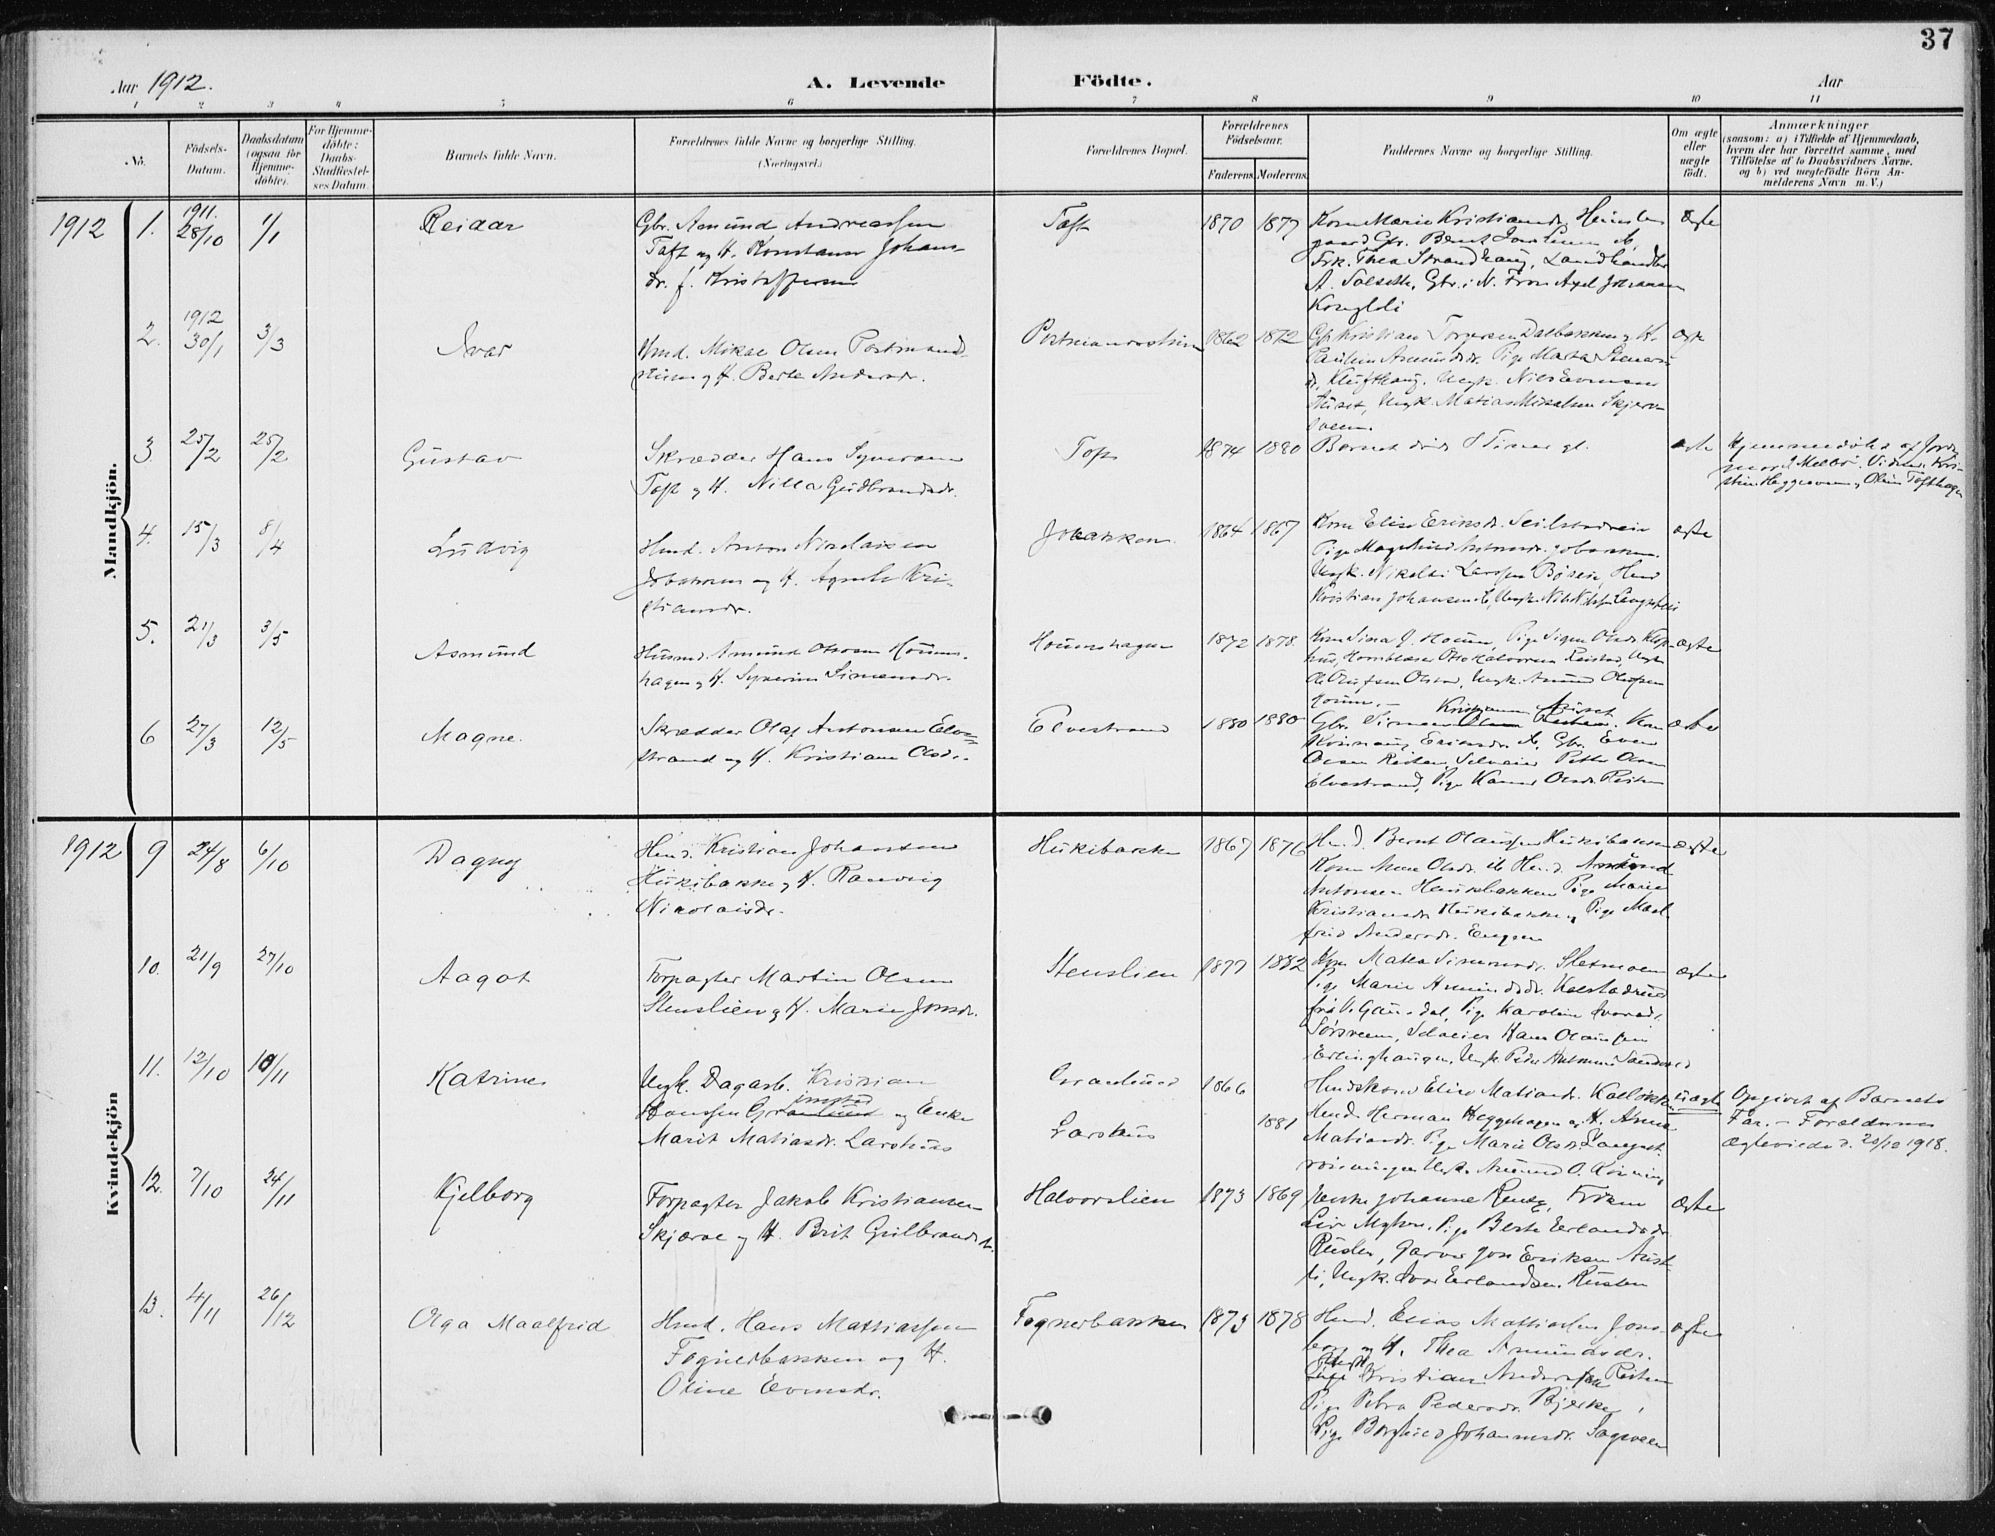 37
Aar 1912.
A. Levende Födte.
Aar
1 2 3 4 5 6 7 8 9 10 11
No.
Födsels-Datum.
Daabsdatum (ogsaa for Hjemme-döbte).
For Hjemme-döbte: Daabs-Stadfæstel-ses Datum.
Barnets fulde Navn.
Forældrenes fulde Navne og borgerlige Stilling.
(Næringsvei.)
Forældrenes Bopæl.
Forældrenes Födselsaar.
Faderens. Moderens.
Faddernes Navne og borgerlige Stilling.
Om ægte eller uægte födt.
Anmærkninger
(saasom: a) i Tilfælde af Hjemmedaab,
hvem der har forrettet samme, med
Tilföielse af to Daabsvidners Navne,
og b) ved uægtefödte Börn An-
melderens Navn m. V.)
Mandkjön.
1912 1. 1911. 28/10 1/1 Reidar
Gbr. Amund Andreassen
Toft og H. Konstanse Johans-
dr. f. Kristoffersen
Toft 1870 1877
Kone Marie Kristiansdr. Heimsten-
gaard Gbr. Bernt
Frk. Thea Strandhaug, Landhandler
A. Solseth, Gbr. i N. Fron Axel Johansen
Kongsli
ægte
2. 1912 30/1 3/3 Ivar
Hmd. Mikal Olsen Postmands-
stuen og H. Berte Andersdr.
Postmandsstuen 1862 1872
Gbr Kristian Torgersen Dalbakken og H.
Pauline Amundsdr. Pige Marta Steners-
dr. Klufthaug. Ungk. Nils Evensen
Auset, Ungk. Matias Mikalsen Skjerv-
oæn.
ægte
3. 25/2 25/2 Gustav
Skrædder Hans Syversen
Toft og H. Nilla Gudbrandsdr.
Toft 1874 1880
Barnet döde 8 Timer gl.
ægte
Hjemmedöbt af Jord-
mor Melbö. Vidner: Kri-
stine Haggeveen og Oline Tofthagen
4. 15/3 8/4 Ludvig
Hmd. Anton Nikolaisen
Jobakken og H. Agnete Kri-
stiansdr.
Jobakken 1864 1867
Kone Elise Eriksdr. Seilstadveie
Pige Magnhild Antonsdr. Jobakken.
Ungk. Nikolai Larssen Böveie, Hmd
Kristian Johansen ib, Ungk Nils Nilssen Langstuei
ægte
5. 21/3 3/5 Asmund
Husmd. Amund Olsson Houms-
hagen og H. Syverine Simensdr.
Houmshagen 1872 1878.
Kone Sina J. Houm, Pige Signe Olsdr. Klop-
hus, Hornblæser Otto Halvorsen Reistad, Ungk
O. Olufsen Olstad, Ungk. Amund Olufsen
Houm.
ægte
6 27/3 12/5 Magne.
Skrædder Olaf Antonsen Elve-
strand og H. Kristiane Olsdr.
Elvestrand 1880 1880
Kristiansen Auset
Gbr. Simen Olsen Reisten. Kone
Rönnaug Eriksdr. ib, Gbr. Even
Olsen Reisten, Selveier Petter Olsen
Elvestrand, Pige Karen Olsdr. Reisten
ægte
Kvindekjön
1912 9 24/8 6/10 Dagny
Hmd. Kristian Johansen
Hukibakken og H. Ranveig
Nikolaisdr.
Hukibakken 1867 1876
Hmd. Bernt Olaussen Hukibakken
Kone Anne Olsdr. ib Hmd. Amund
Antonsen Haukebakken Pige Marie
Kristiansdr. Hukibakken og Pige Maal-
frid Andersdr. Engen
ægte
10. 21/9 27/10 Aagot
Forpagter Martin Olsen
Stenslien og H. Marie Jonsdr.
Stenslien 1877 1882
Kone Matea Simensdr. Sletmoen
Pige Marie Amundsdr. Kolstadrud
fra V. Gausdal, Pige Karoline Ivarsdr.
Sörsveen, Selveier Hans Olaussen
Erlinghaugen, Ungk. Peder Antonsen Sandvold
ægte
11. 12/10 10/11 Katrine
Ungk. Dagarb. Kristian
Hanssen Granlund og Enke
Marit Matiasdr. Larshus
Granlund
Larshus
1866 1881
Hmdskone Elise Matiasdr. Kallökken
Hmd. Herman Heggehagen og H. Anna
Matiasdr. Pige Marie Olsdr. Langst-
rönningen Ungk. Amund O. Rönning
uægte
Opgivet af Barnets
Far. – Forældrene
ægteviede d. 20/12 1918.
12. 7/10 24/11 Kjelborg
Forpagter Jakob Kristiansen
Skjærve og H. Brit Gulbrandsdr.
Halvorslien 1873 1869
Enke Johanne Rentz, Fröken
Liv Myhre, Pige Berte Erlandsdr.
Rusten, Garver Jon Eriksen Aust-
li, Ungk. Ivar Erlandsen Rusten
ægte
13. 4/11 26/12 Olga Maalfrid
Hmd. Hans Mattiassen
Fognerbakken og H.
Oline Evensdr.
Fognerbakken 1873 1878
Hmd. Elias Mattiassen Jons-
berg og H. Thea Amundsdr.
Ungk Kristian Anderssen Reisten
Pige Petra Pedersdr. Bjerke,
Pige Borghild Johannesdr. Sagveen
ægte